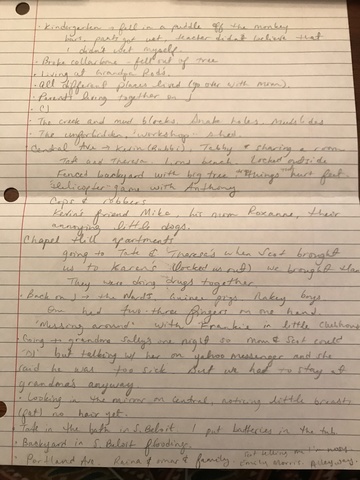 • Kindergarten - fell in a puddle off the monkey
bars, pants got wet, teacher didn't believe that
I didn't wet myself
• Broke collarbone - fell out of tree
• Living at Grandpa Reds.
• All different places lived (go over with mom).
• Parents living together on J
• CJ
• The creek and mod blocks. Snake holes. Mudslides
• The unforbidden "workshop" shed.
• Central Ave → Karin (Rabbi) Tabby & sharing a room
Tate and Theresa Lived beach locked outside
Fenced backyard with big tree things hurt feet
"Helicopter" game with Anthony
Cops & robbers
Kevin's friend Mike, his mom Roxanne, their
annoying little dogs.
Chapel Hill apartments
going to Tate & Therese's when Scot brought
us to Karen's (locked us out) we brought
They were doing drugs together.
• Back on J → the Nards, Guinea pigs, Nakey boys
had two-three fingers on one hand
"Messing around" with Frankie in little
• Going to grandma Sally's one night so mom & Scot could
but talking w/ her on yahoo messenger and she
said he was too sick but we had to stay at
grandma's anyway.
• Looking in the mirror on Central, noticing little breasts
(fat) no hair yet.
• Tate in the bath in S. Beloit I put batteries in the tub
• Backyard in S. Beloit flooding.
• Portland Ave Raina & omar & family
Emily Morris